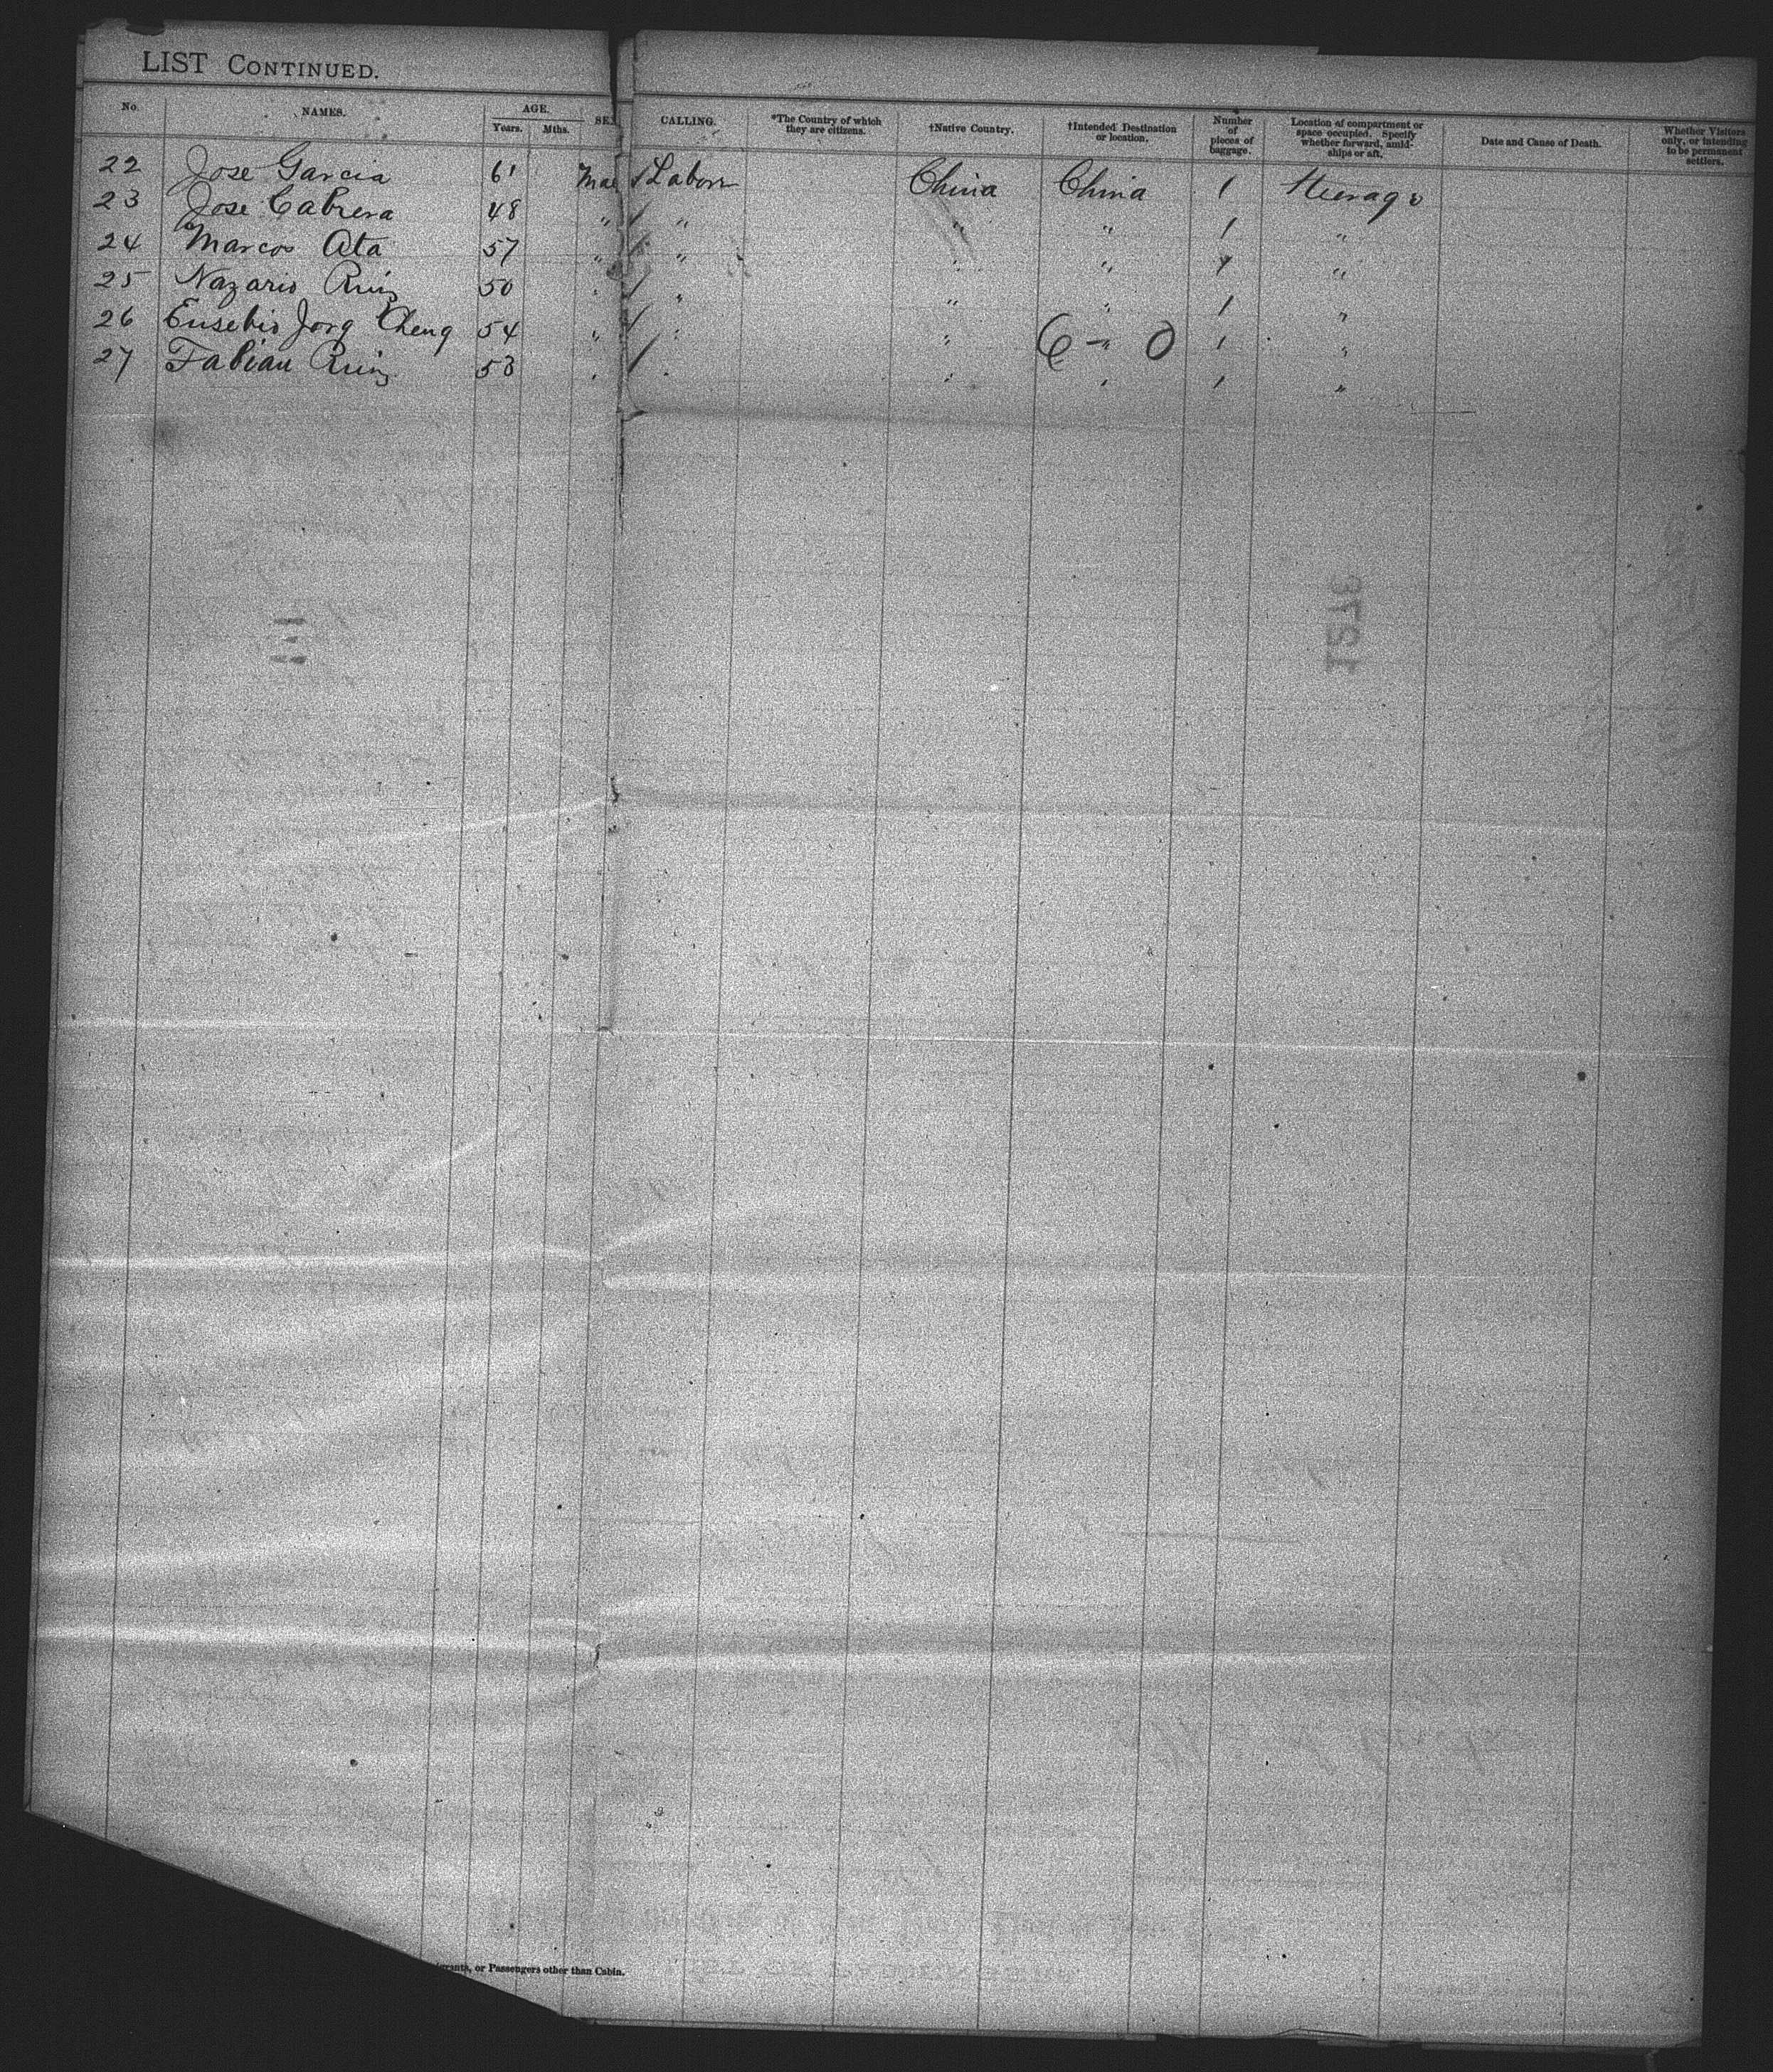 LIST CONTINUED.
No. NAMES. AGE. Years. Mths. SEX CALLING. *The Country of which they are citizens. †Native Country. †Intended Destination or location. Number of pieces of baggage. Location of compartment or space occupied. Specify whether forward, amidships or aft. Date and Cause of Death. Whether Visitors only, or intending to be permanent settlers.
22 Jose Garcia 61 Mal Labor China China 1 Steerage
23 Jose Cabrera 48 " " " " 1 "
24 Marcos Ata 57 " " " " 1 "
25 Nazario Ruiz 50 " " " " 1 "
26 Eusebio Jorg Cheng 54 " " " " 1 "
6 - 0
27 Fabian Ruiz 53 " " " " 1 "
1278
grants, or Passengers other than Cabin.